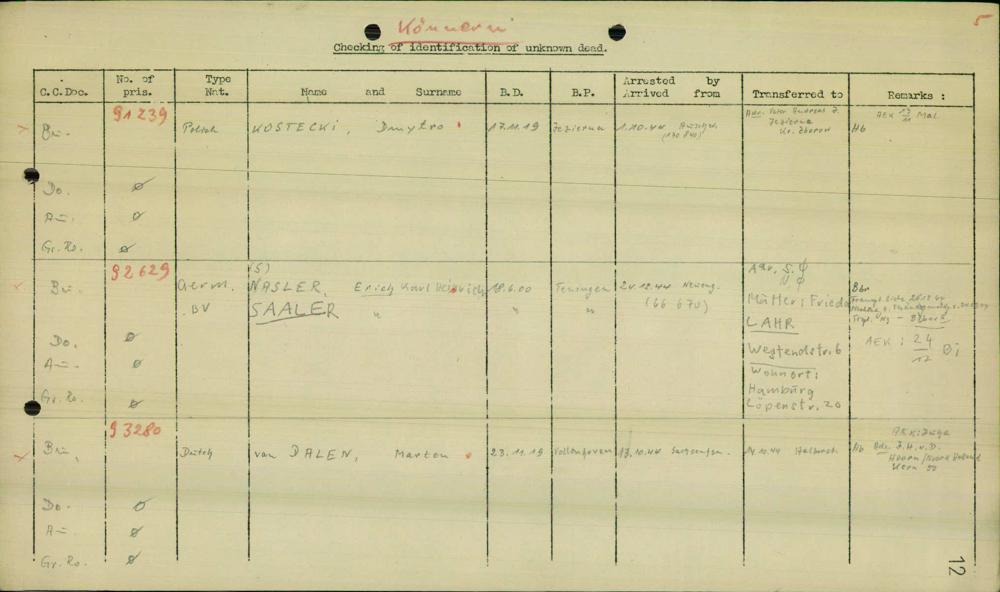 Könnern
5
Checking of identification of unknown dead.
C.C.Doc. No. of pris. Type Nat. Name and Surname B.D. B.P. Arrested by Arrived from Transferred to Remarks :
91239
Bu. Polish KOSTECKI, Dmytro 17.11.19 Jezierna 1.10.44 Adr. Vater Andreas J. Jezierna Kr. Zborow Hb AEK 13/11 Mal
Do. ø
A=. ø
Gr. Ro. ø
92629
Bu. Germ. BV (S) NASLER, Erich Karl Heinrich 18.6.00 21.12.44 Neueng. (66 670)
SAALER " " "
Mutter: Frieda
LAHR
Westendstr. 6
Wohnort:
Hamburg
Löpenstr. 20
Bbr
AEK: 24/12 Bi
Do. ø
A=. ø
Gr. Ro. ø
93280
Bu. Dutch van DALEN, Marten 23.11.19 Vollenhoven 13.10.44 Sachsenhsn. Halberst. Hb Adr. J.H.v.D.
Hoorn/Noord Holland
Do. ø
A=. ø
Gr. Ro. ø
12